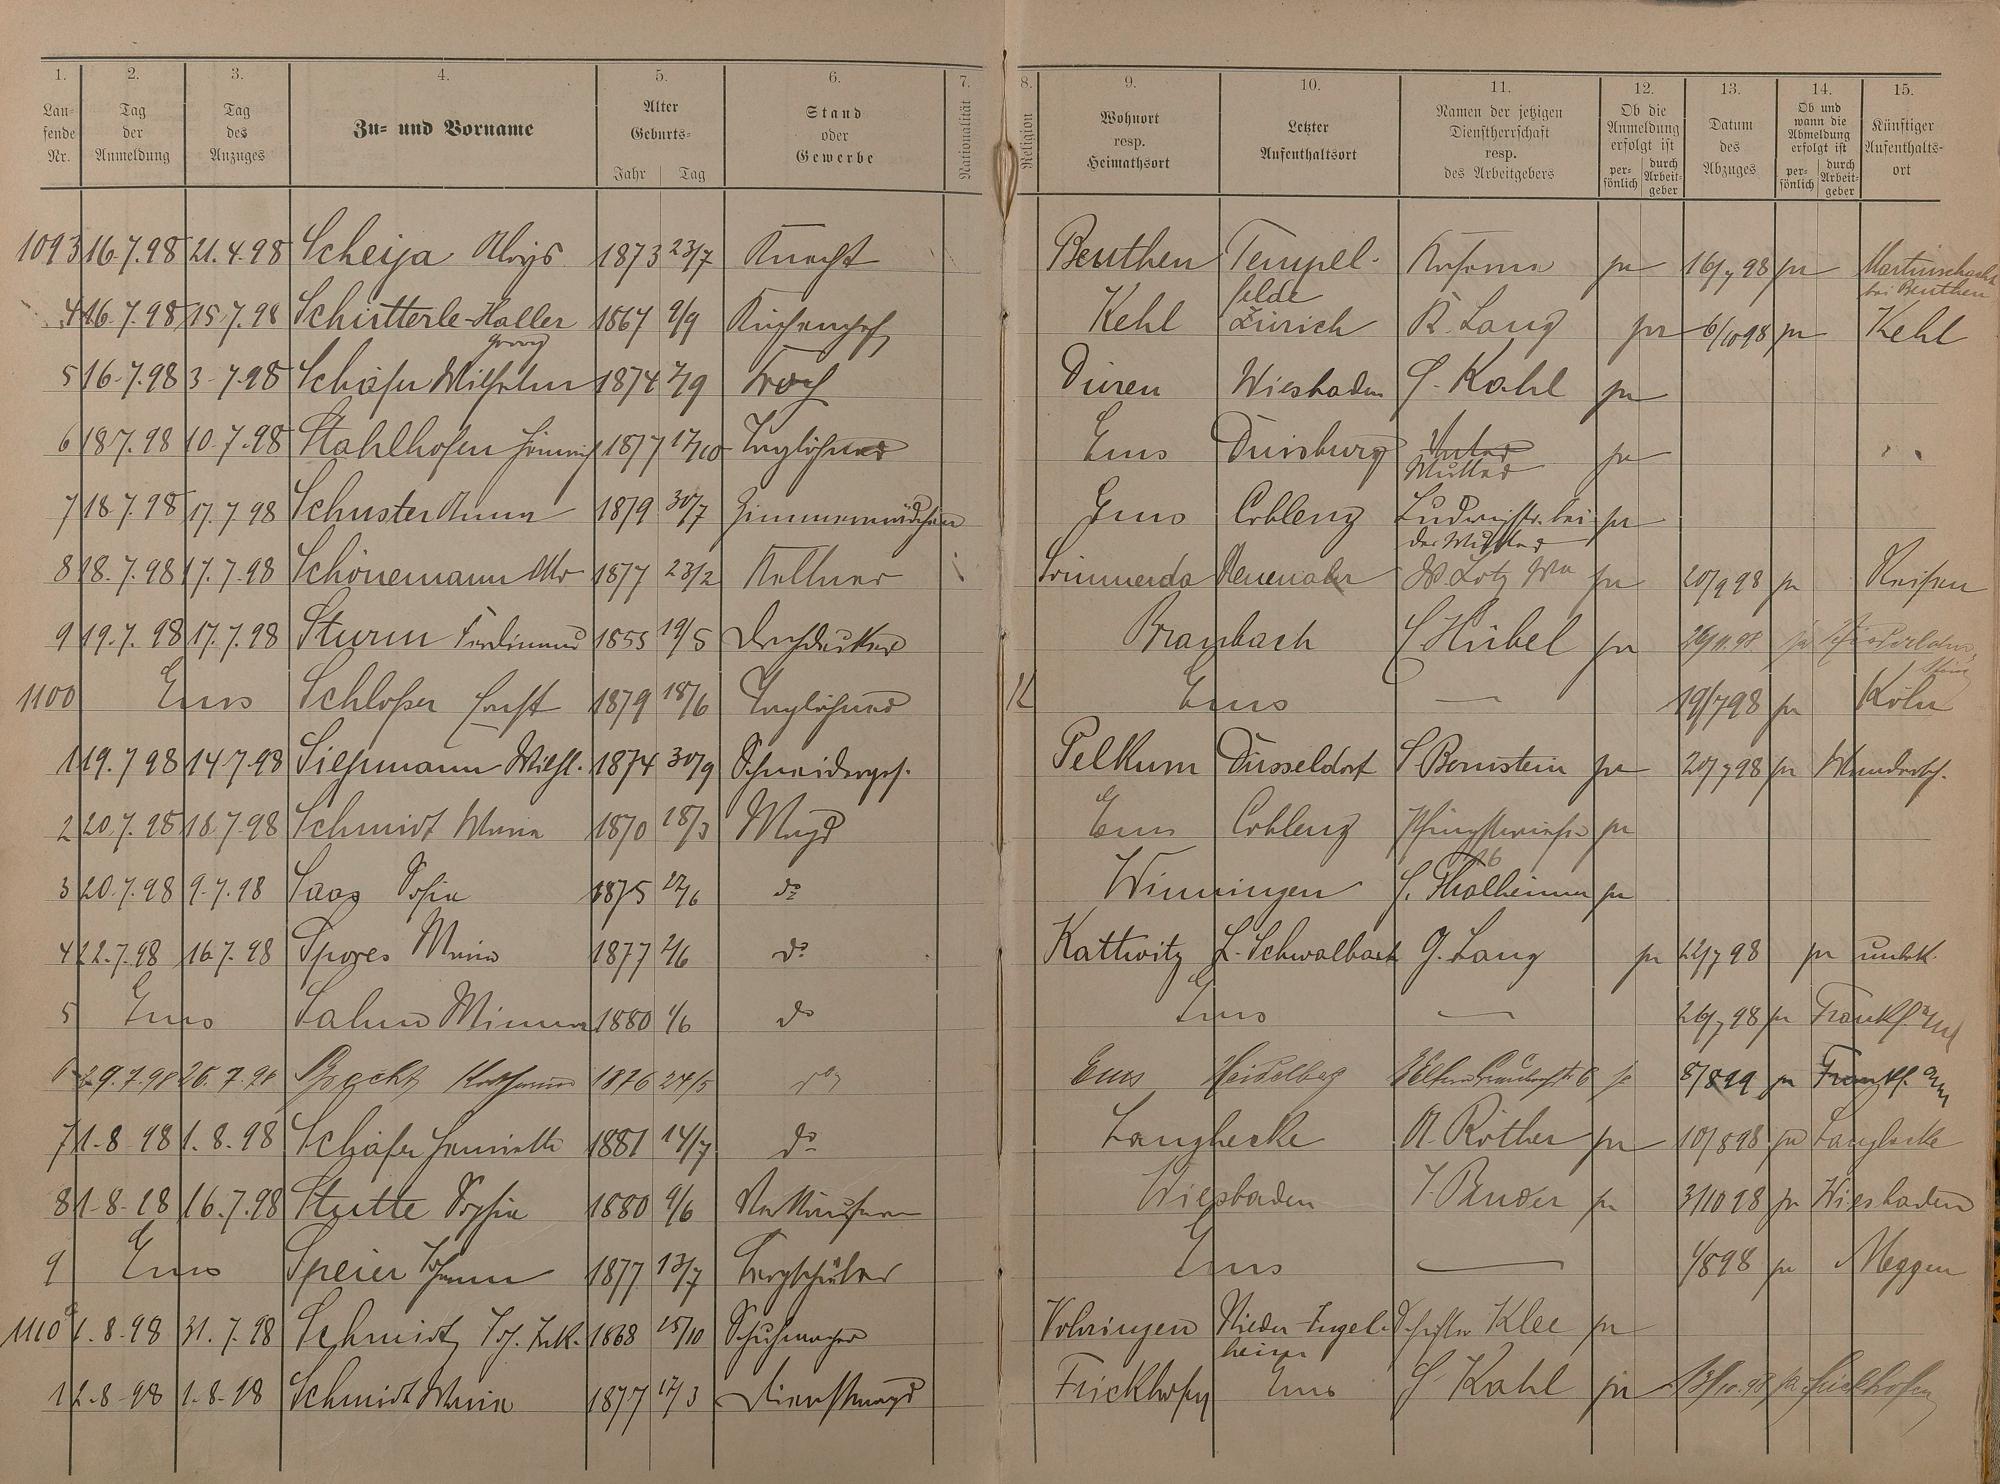 1. 2. 3. 4. 5. 6. 7. 8. 9. 10. 11. 12. 13. 14. 15.
Laufende Nr.
Tag der Anmeldung
Tag des Anzuges
Zu- und Vorname
Alter
Geburts-
Jahr Tag
Stand oder Gewerbe
Nationalität
Religion
Wohnort resp. Heimathsort
Letzter Aufenthaltsort
Namen der jetzigen Dienstherrschaft resp. des Arbeitgebers
Ob die Anmeldung erfolgt ist
persönlich durch Arbeitgeber
Datum des Abzuges
Ob und wann die Abmeldung erfolgt ist
persönlich durch Arbeitgeber
Künftiger Aufenthaltsort
1093 16.7.98 21.4.98 Scheija Aloys 1873 23/7 Knecht Beuthen Tempelfelde 16/7 98 Martinschacht bei Beuthen
4 16.7.98 15.7.98 Schütterle-Haller Georg 1867 9/9 Küchenchef Kehl Zürich R. Lang 6/10 98 Kehl
5 16.7.98 3.7.98 Schäfer Wilhelm 1874 7/9 Koch Düren Wiesbaden G. Kahl
6 18.7.98 10.7.98 Stahlhofen Heinrich 1877 17/10 Taglöhner Ems Duisburg Vater Mutter
7 18.7.98 17.7.98 Schuster Anna 1879 30/7 Zimmermädchen Ems Coblenz Ludwigstr. bei der Mutter
8 18.7.98 17.7.98 Schönemann Otto 1877 23/2 Kellner Sömmerda Neuenahr W Lotz 20/9 98 Reisen
9 19.7.98 17.7.98 Sturm Ferdinand 1855 19/5 Dachdecker Braubach C Hübel 26/11.98
1100 Ems Schloßer Ernst 1879 18/6 Taglöhner K Ems — 19/7 98 Köln
1 19.7 98 14.7.98 Siepmann Wilh. 1874 30/9 Schneiderges. Pelkum Düsseldorf S Bernstein 20/7 98 Wandersch.
2 20.7.98 18.7.98 Schmidt Maria 1870 28/3 Magd Ems Coblenz
3 20.7.98 9.7.98 Saas Sofia 1875 22/6 do Winningen S. Thalheimer
4 22.7.98 16.7.98 Spores Maria 1877 2/6 do Kattwitz L. Schwalbach G. Lang 22/7 98 unbek.
5 Ems Salm Minna 1880 1/6 do Ems — 26/7 98 Frankf. a/M
6 29.7.98 26.7.98 Specht Katharina 1876 24/5 do Ems Heidelberg 8/8 99 Frankf. a/M
7 1.8.98 1.8.98 Schäfer Henriette 1881 14/7 do Langhecke A. Röther 10/8 98 Langhecke
8 1.8.98 16.7.98 Stutte Sophia 1880 9/6 Verkäuferin Wiesbaden J. Bender 3/10 98 Wiesbaden
9 Ems Speier Johann 1877 13/7 Bergschüler Ems — 1/8 98 Meggen
1110 1.8.98 31.7.98 Schmidt Joh. Jak. 1868 25/10 Schuhmacher Vohringen Nieder-Ingelheim Klee
1 2.8.98 1.8.98 Schmidt Maria 1877 17/3 Dienstmagd Frickhofen Ems G Kahl Frickhofen